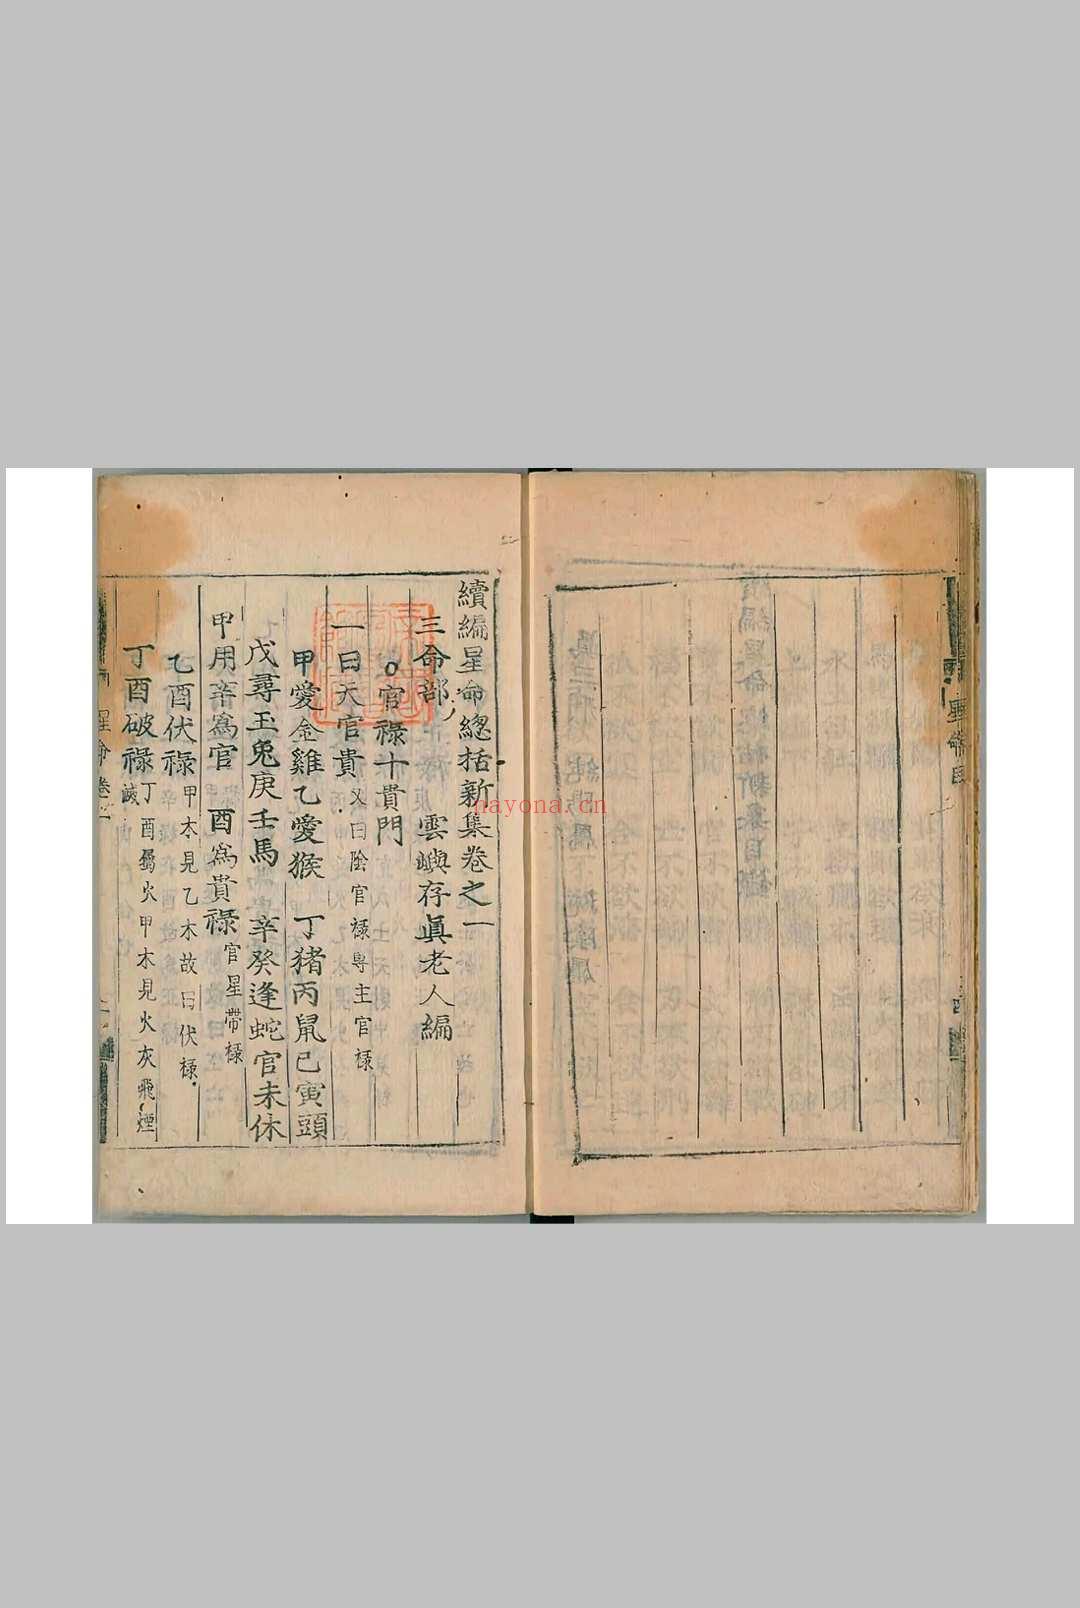 續編星命總括新集卷之一
三命部 雲嶼存眞老人編
○官祿十貴門
一曰天官貴 又曰陰官祿専主官祿
甲愛金雞乙愛猴 丁猪丙鼠己寅頭
戊尋玉兔庚壬馬 辛癸逢蛇官未休
甲用辛爲官 酉爲貴祿 官星帶祿
乙酉伏祿 甲木見乙木故曰伏祿
丁酉破祿 丁酉屬火甲木見火灰飛煙滅
nayona.cn